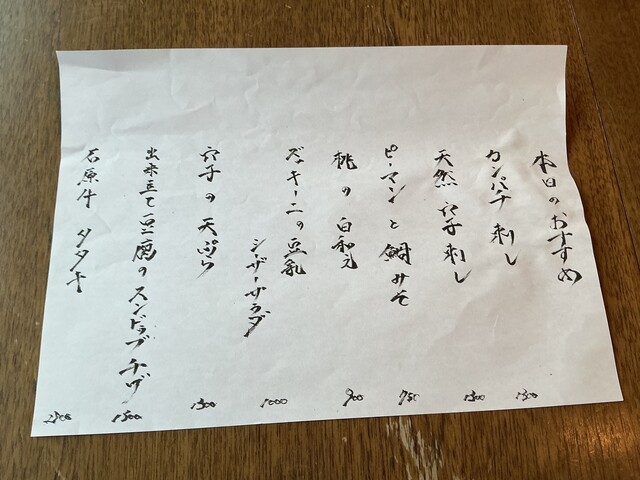 本日のおすすめ
カンパチ刺し 1300
天然穴子刺し 1300
ピーマンと鯛みそ 750
桃の白和え 900
ズッキーニの豆乳
シーザーサラダ 1000
穴子の天ぷら 1300
出来立て豆腐のスンドゥブチゲ 1500
石原牛タタキ